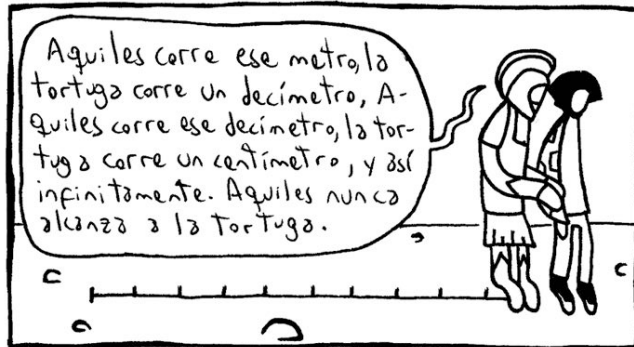 Aquiles corre ese metro, la
tortuga corre un decímetro, A-
quiles corre ese decímetro, la tor-
tuga corre un centímetro, y así
infinitamente. Aquiles nunca
alcanza a la tortuga.